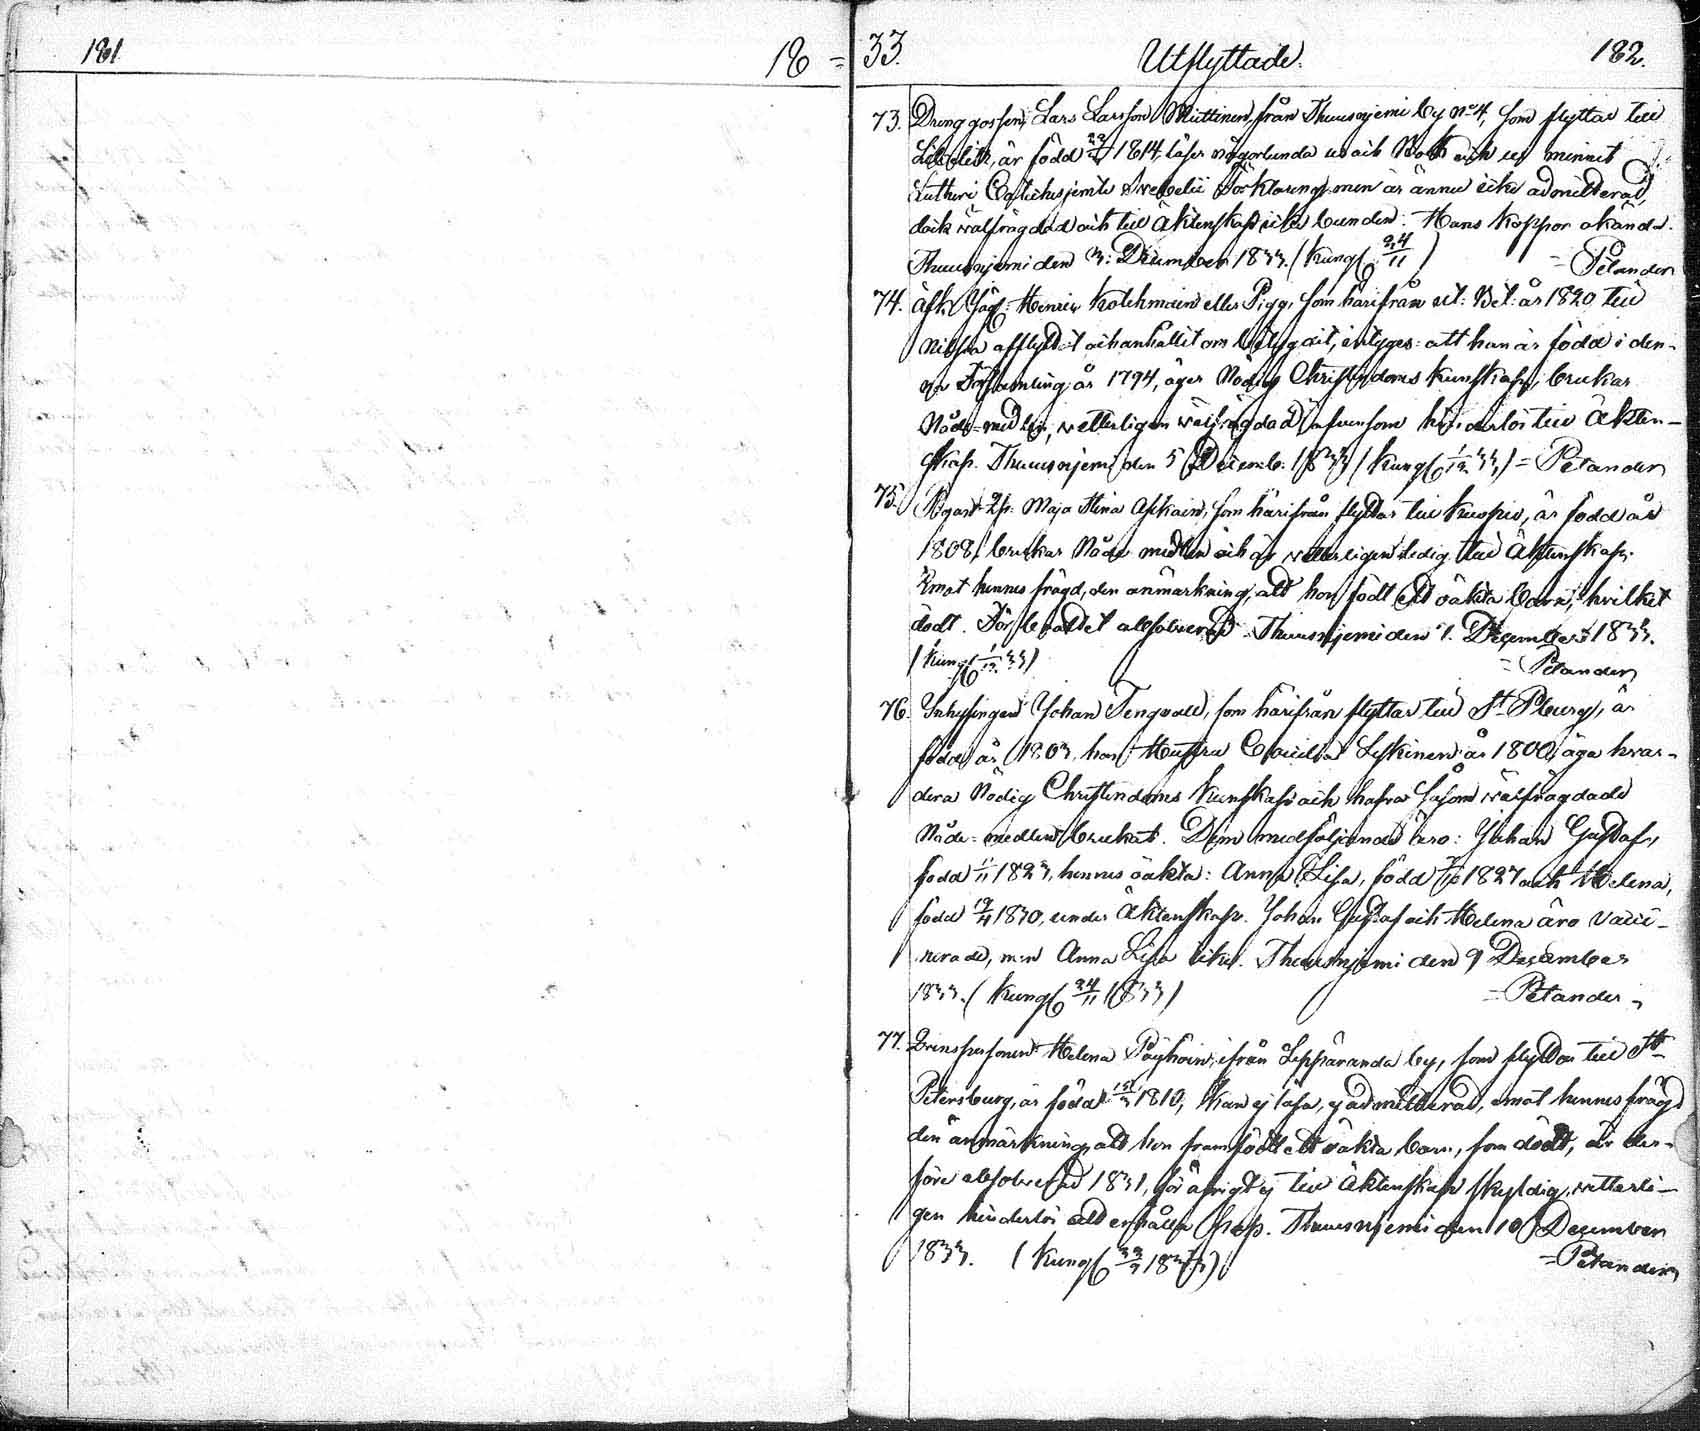 181
18 =
33.
Utflyttade.
182.
73. Dreng gossen Lars Larsson Miettinen, från Thuusnjemi by No 4, som flyttar till
är född 1814, läser någorlunda ur och Bok och ur minnet
Lutheri Catches jemte Svebelii Förklaring, men är ännu icke admitterad,
dock välfrägdad och till Äktenskap icke bunden. Hans Koppor okända.
Thuusnjemi den 3: December 1833. (Kung 24/11) = Petander
74. Afsk. Henric Kolehmain eller Pigg, som härifrån år 1820 till
Nilsiä afflyttat och anhållit om betyg dit, intyges: att han är född i den-
na Församling år 1794, äger Nödig Christendoms Kunskap, brukar
Nåde-medlen, wetterligen välfrägdad äfvensom hinderlös till Äkten-
skap. Thuusnjemi den 5 Decemb. 1833 (Kung 1/12 33) = Petander
75. Maja Stina Askain, som härifrån flyttar till Kuopio, är född år
1808, brukar Nåde medlen och är wetterligen ledig till Äktenskap.
Emot hennes frägd, den anmärkning, att hon födt ett oäkta barn, hvilket
dödt. För brottet absolverad. Thuusnjemi den 7. December 1833.
(Kung 1/12 33) = Petander
76. Inhysingen Johan Tengvall, som härifrån flyttar till St Pburg, är
född år 1803, hans Hustru Leskinen år 1800, äga hvar-
dera Nödig Christendoms Kunskap och hafva såsom välfrägdade
Nåde-medlen brukat. Dem medföljande äro: Johan Gustaf,
född 1823, hennes oäkta: Anna Lisa, född 1827 och Helena,
född 19/4 1830, under Äktenskap. Johan Gustaf och Helena äro vacci-
nerade, men Anna Lisa icke. Thuusnjemi den 9 December
1833. (Kung 24/11 1833) = Petander
77. Helena Pöyhöin, ifrån Leppäranda by, som flyttar till St
Petersburg, är född 1810, kan ej läsa, ej admitterad, emot hennes frägd
den anmärkning, att hon framfödt ett oäkta barn, som dödt, är der-
före absolverad 1831, för öfrigt ej till Äktenskap skyldig, wetterli-
gen hinderlös att erhålla Pass. Thuusnjemi den 10 December
1833. (Kung 1833) = Petander